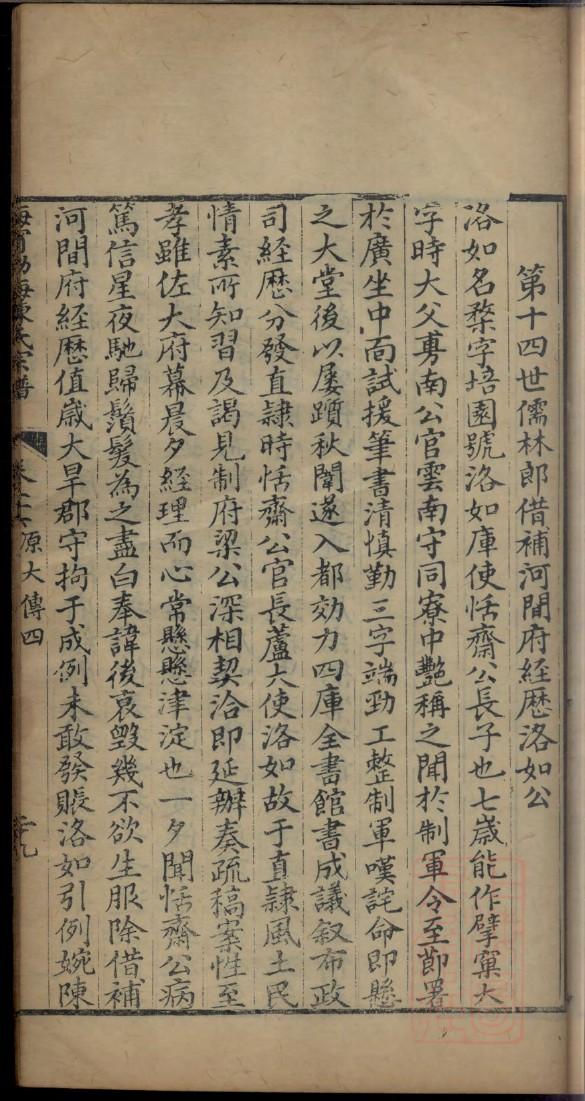 第十四世儒林郎借補河間府經歷洛如公
洛如名橆字培園號洛如庫使恬齋公長子也七歲能作擘窠大
字時大父叀南公官雲南守同寮中艷稱之聞於制軍令至節署
於廣坐中面試援筆書清慎勤三字端勁工整制軍嘆詫命即懸
之大堂後以屢躓秋闈遂入都効力四庫全書館書成議叙布政
司經歷分發直隸時恬齋公官長蘆大使洛如故于直隸風土民
情素所知習及謁見制府梁公深相契洽即延辦奏疏稿案性至
孝雖佐大府幕晨夕經理而心常懸懸津淀也一夕聞恬齋公病
篤信星夜馳歸鬚髮為之盡白奉諱後哀毀幾不欲生服除借補
河間府經歷值歲大旱郡守拘于成例未敢發賑洛如引例婉陳
海寧渤海陳氏宗譜
源大傳四